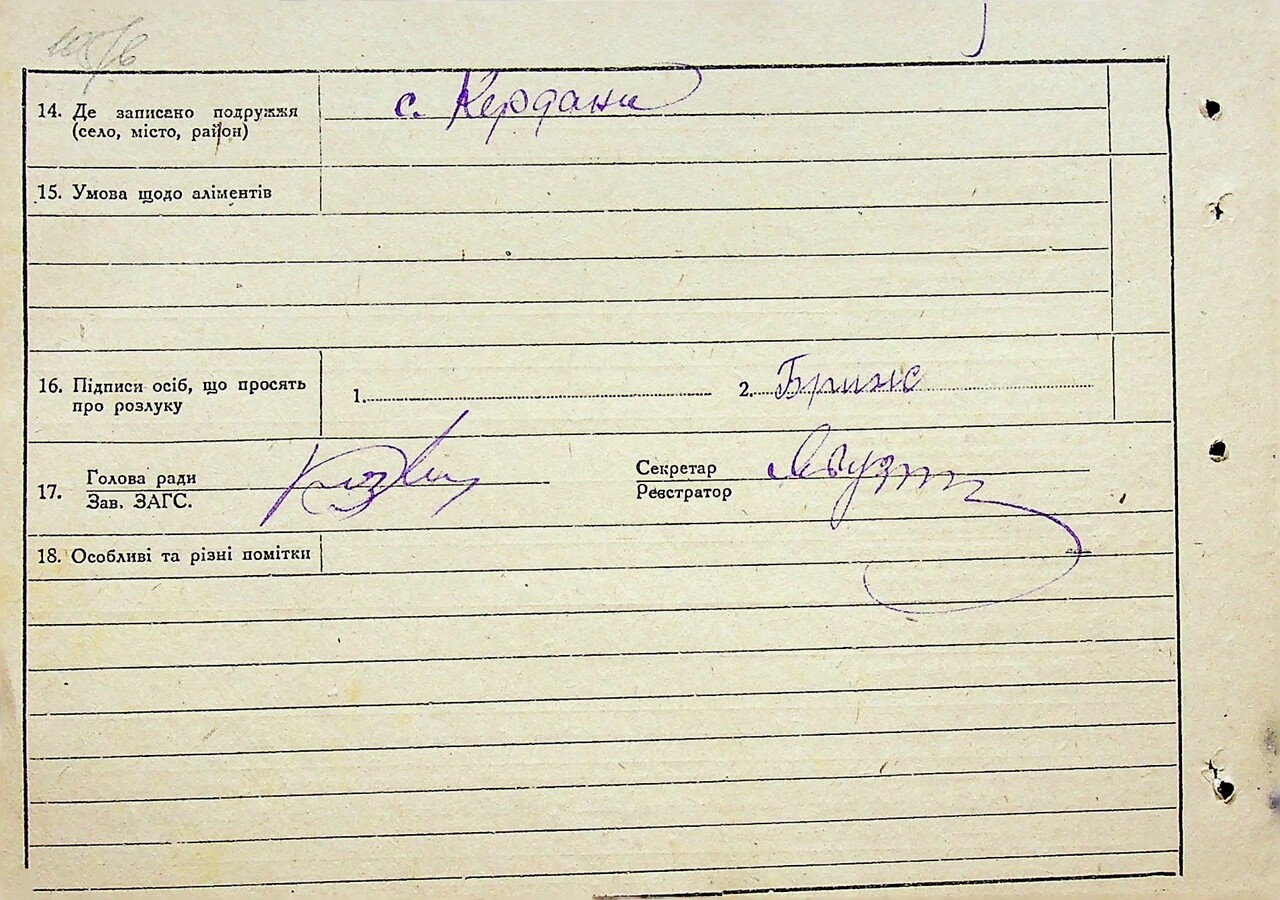 14. Де записано подружжя
(село, місто, район)
с. Кердани
15. Умова щодо аліментів
16. Підписи осіб, що просять
про розлуку
1.
2. Бринс
17. Голова ради
Зав. ЗАГС.
Секретар
Реєстратор
18. Особливі та різні помітки